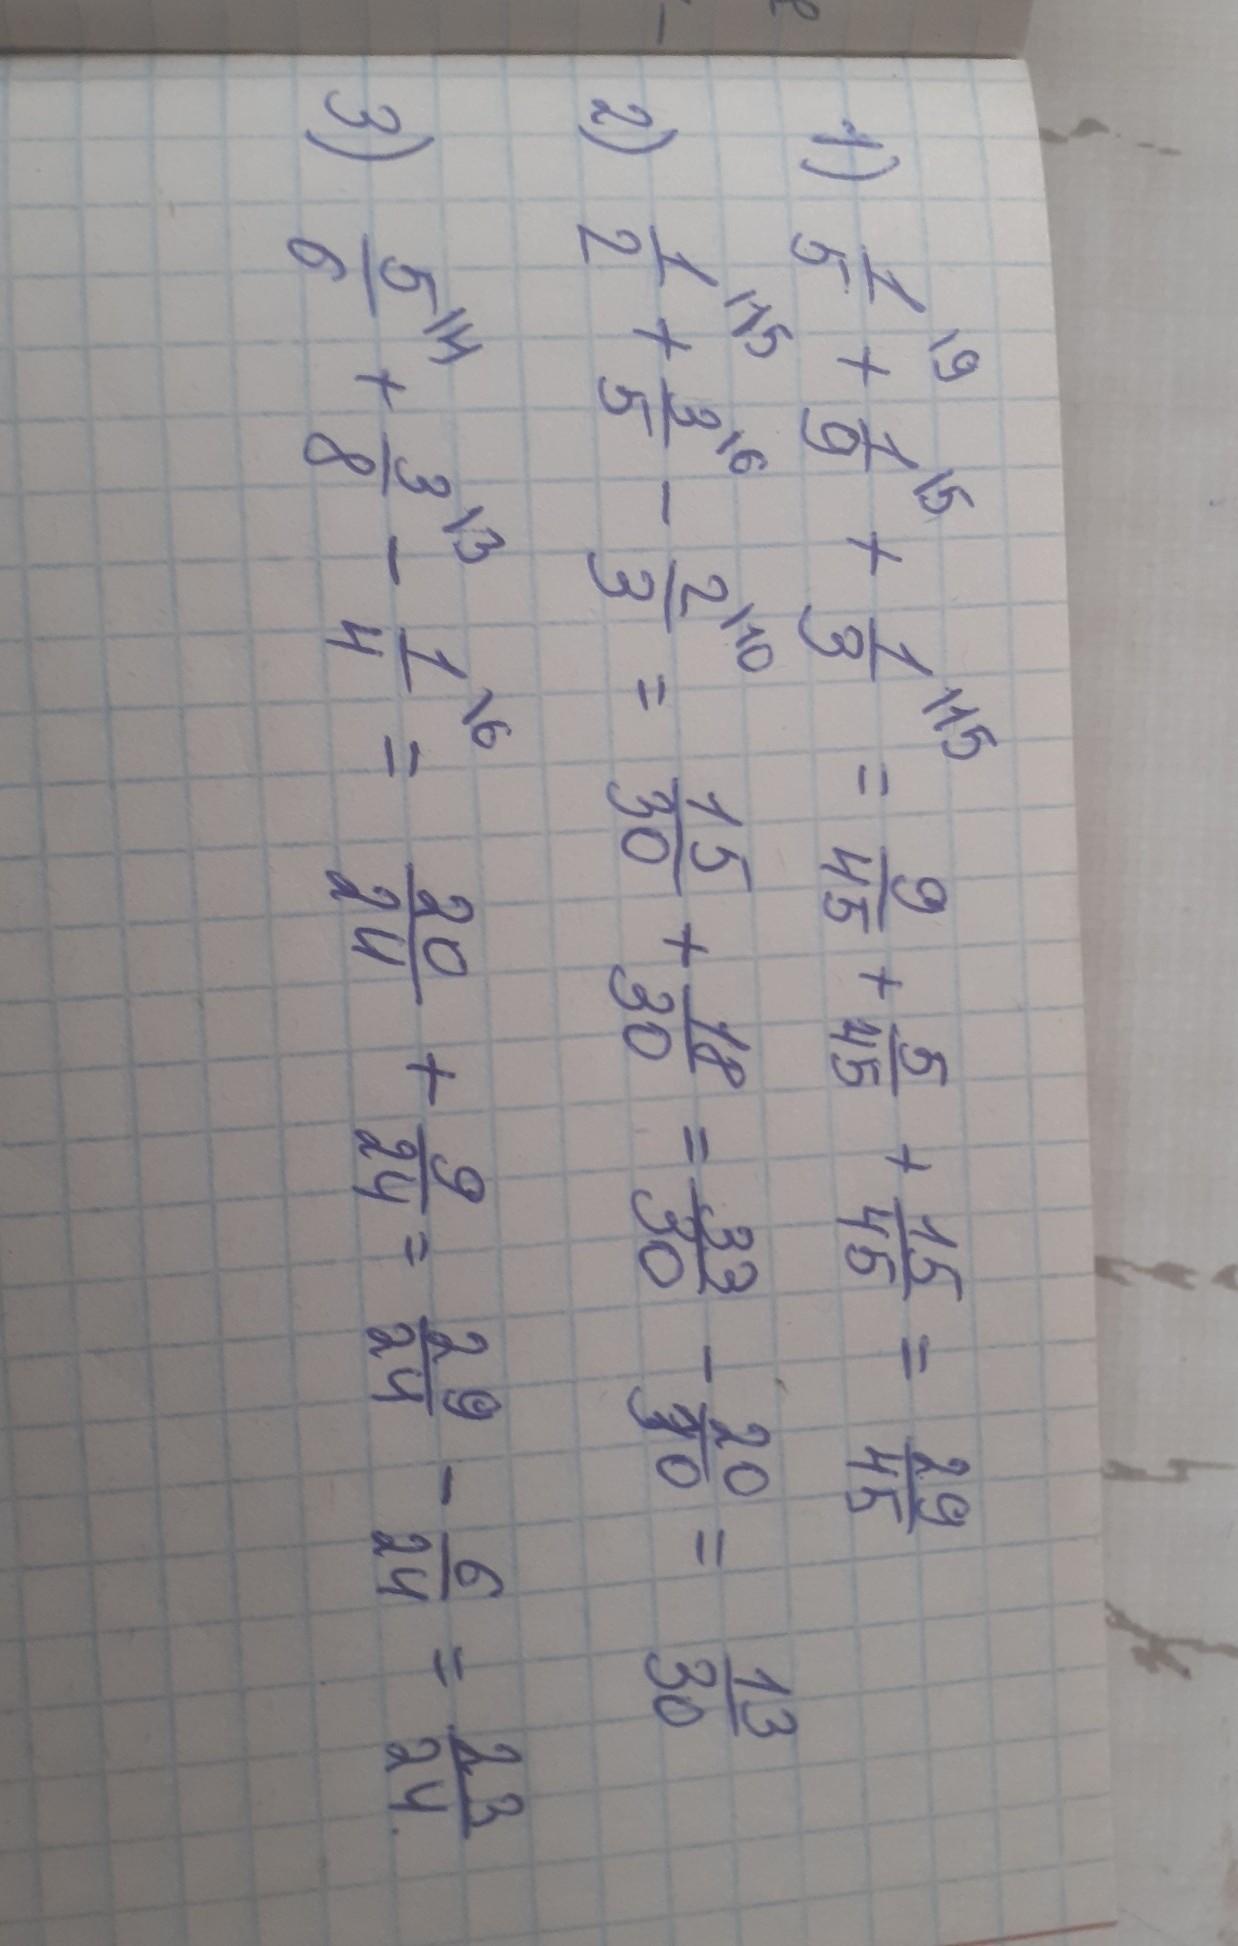 1) 1/5 \9 + 1/9 \5 + 1/3 \15 = 9/45 + 5/45 + 15/45 = 29/45
2) 1/2 \15 + 3/5 \6 - 2/3 \10 = 15/30 + 18/30 = 33/30 - 20/30 = 13/30
3) 5/6 \4 + 3/8 \3 - 1/4 \6 = 20/24 + 9/24 = 29/24 - 6/24 = 23/24.